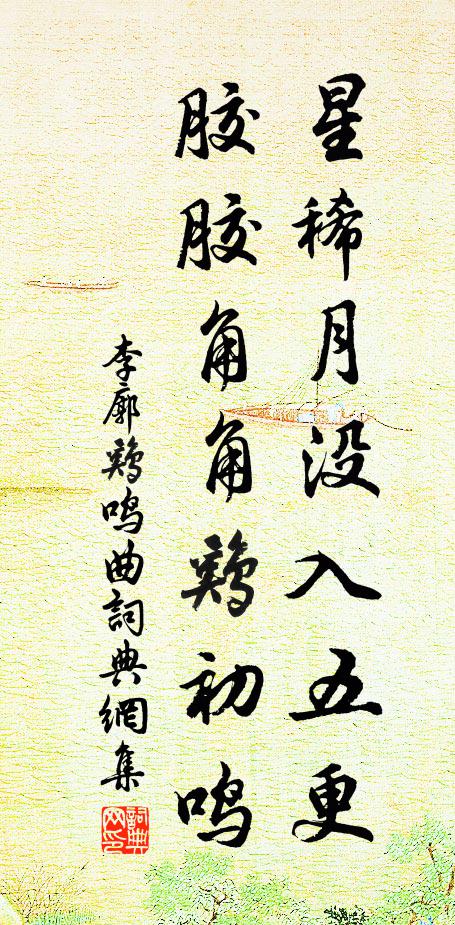 星稀月没入五更
胶胶角角鸡初鸣
李廓鸡鸣曲詞典網集
詞典
网印